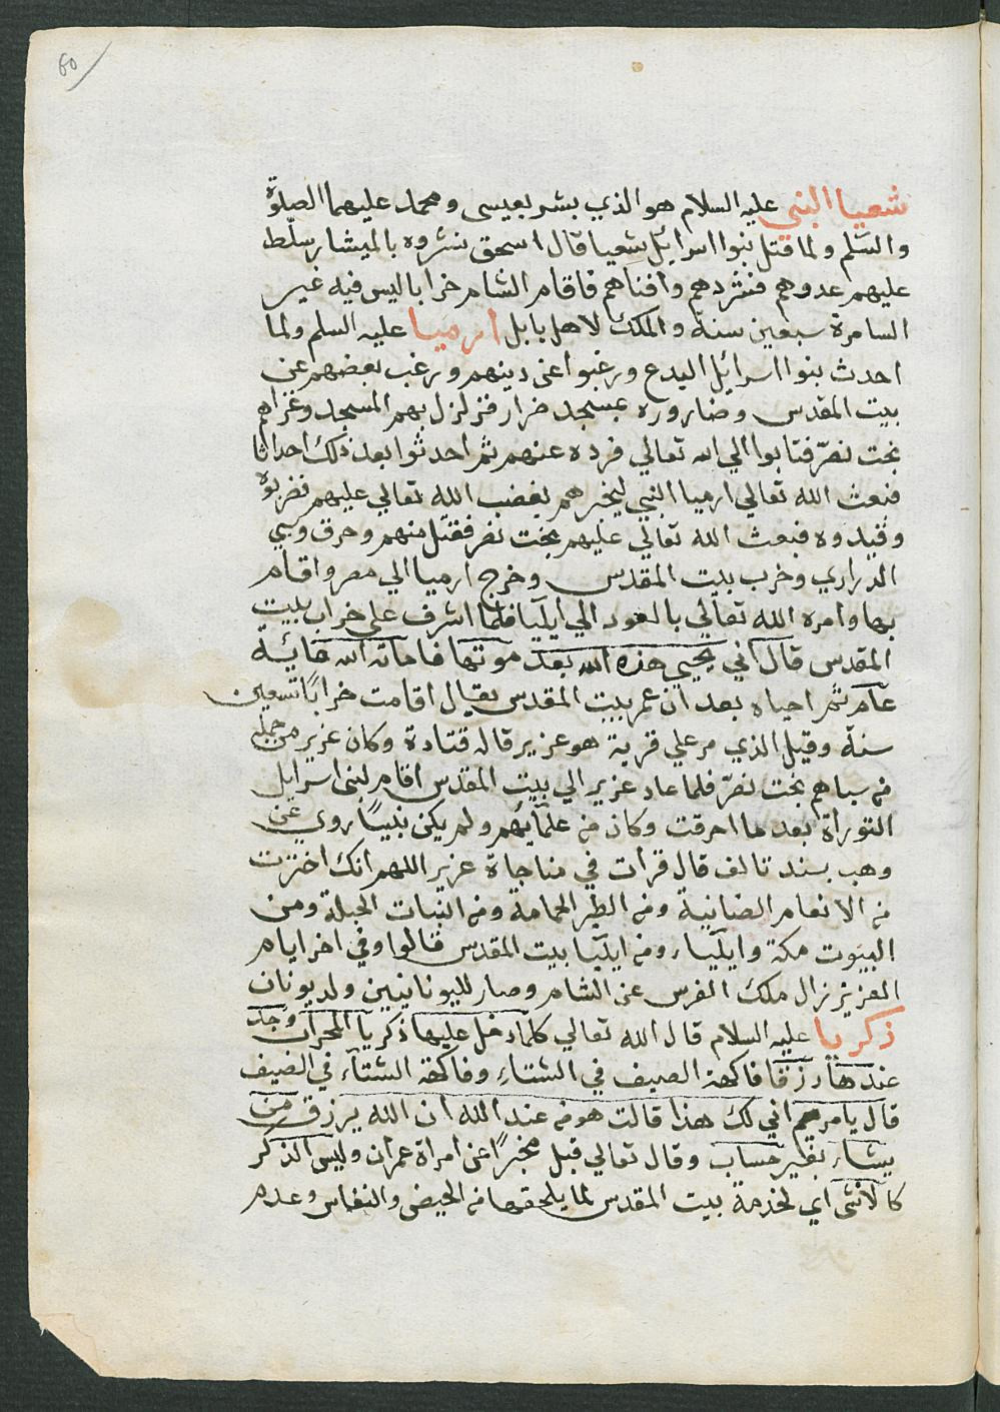 60
شعيا النبي عليه السلام هو الذي بشر بعيسى ومحمد عليهما الصلوة
والسّلم ولما قتل بنوا اسرائيل شعيا قال اسحق نشروه بالميشار سلّط
عليهم عدوهم فشردهم وافناهم فاقام الشام خرابا ليس فيه غير
السامرة سبعين سنة والملك لاهل بابل ارميا عليه السلم ولما
احدث بنوا اسرائيل البدع ورغبوا عن دينهم ورغب بعضهم عن
بيت المقدس وضاروره بمسجد ضرار فزلزل بهم المسجد وغزاهم
بخت نصّر فتابوا الي الله تعالي فرده عنهم ثم احدثوا بعد ذلك احداثا
فبعث الله تعالي ارميا النبي ليخبرهم بغضب الله تعالي عليهم فضربوه
وقيدوه فبعث الله تعالي عليهم بخت نصر فقتل منهم وحرق وسبي
الذراري وخرب بيت المقدس وخرج ارميا الي مصر واقام
بها وامره الله تعالي بالعود الي ايليا فلما اشرف علي خراب بيت
المقدس قال اني يحيي هذه الله بعد موتها فاماته الله مائة
عام ثم احياه بعد ان عمر بيت المقدس يقال اقامت خرابًا تسعين
سنة وقيل الذي مر علي قرية هو عزير قاله قتادة وكان عزير من جملة
من سباهم بخت نصّر فلما عاد عزير الي بيت المقدس اقام لبنى اسرايل
التوراة بعد ما احرقت وكان من علمائهم ولم يكن نبيّاً روي عن
وهب بسند تالف قال قرات في مناجاة عزير اللهم انك اخترت
من الانعام الضانية ومن الطير الحمامة ومن النبات الحبلة ومن
البيوت مكة وايلياء ومن ايليا بيت المقدس قالوا وفي اخر ايام
العزيز زال ملك الفرس عن الشام وصار لليونانيين ولد يونان
ذكريا عليه السلام قال الله تعالي كلما دخل عليها ذكريا المحراب وجد
عندها رزقا فاكهة الصيف في الشتاء وفاكهة الشتاء في الصيف
قال يا مريم اني لك هذا قالت هو من عند الله ان الله يرزق من
يشاء بغير حساب وقال تعالي قبل مخبرًا عن امراة عمران وليس الذكر
كالانثى اي لخدمة بيت المقدس لما يلحقها من الحيض والنفاس وعدم